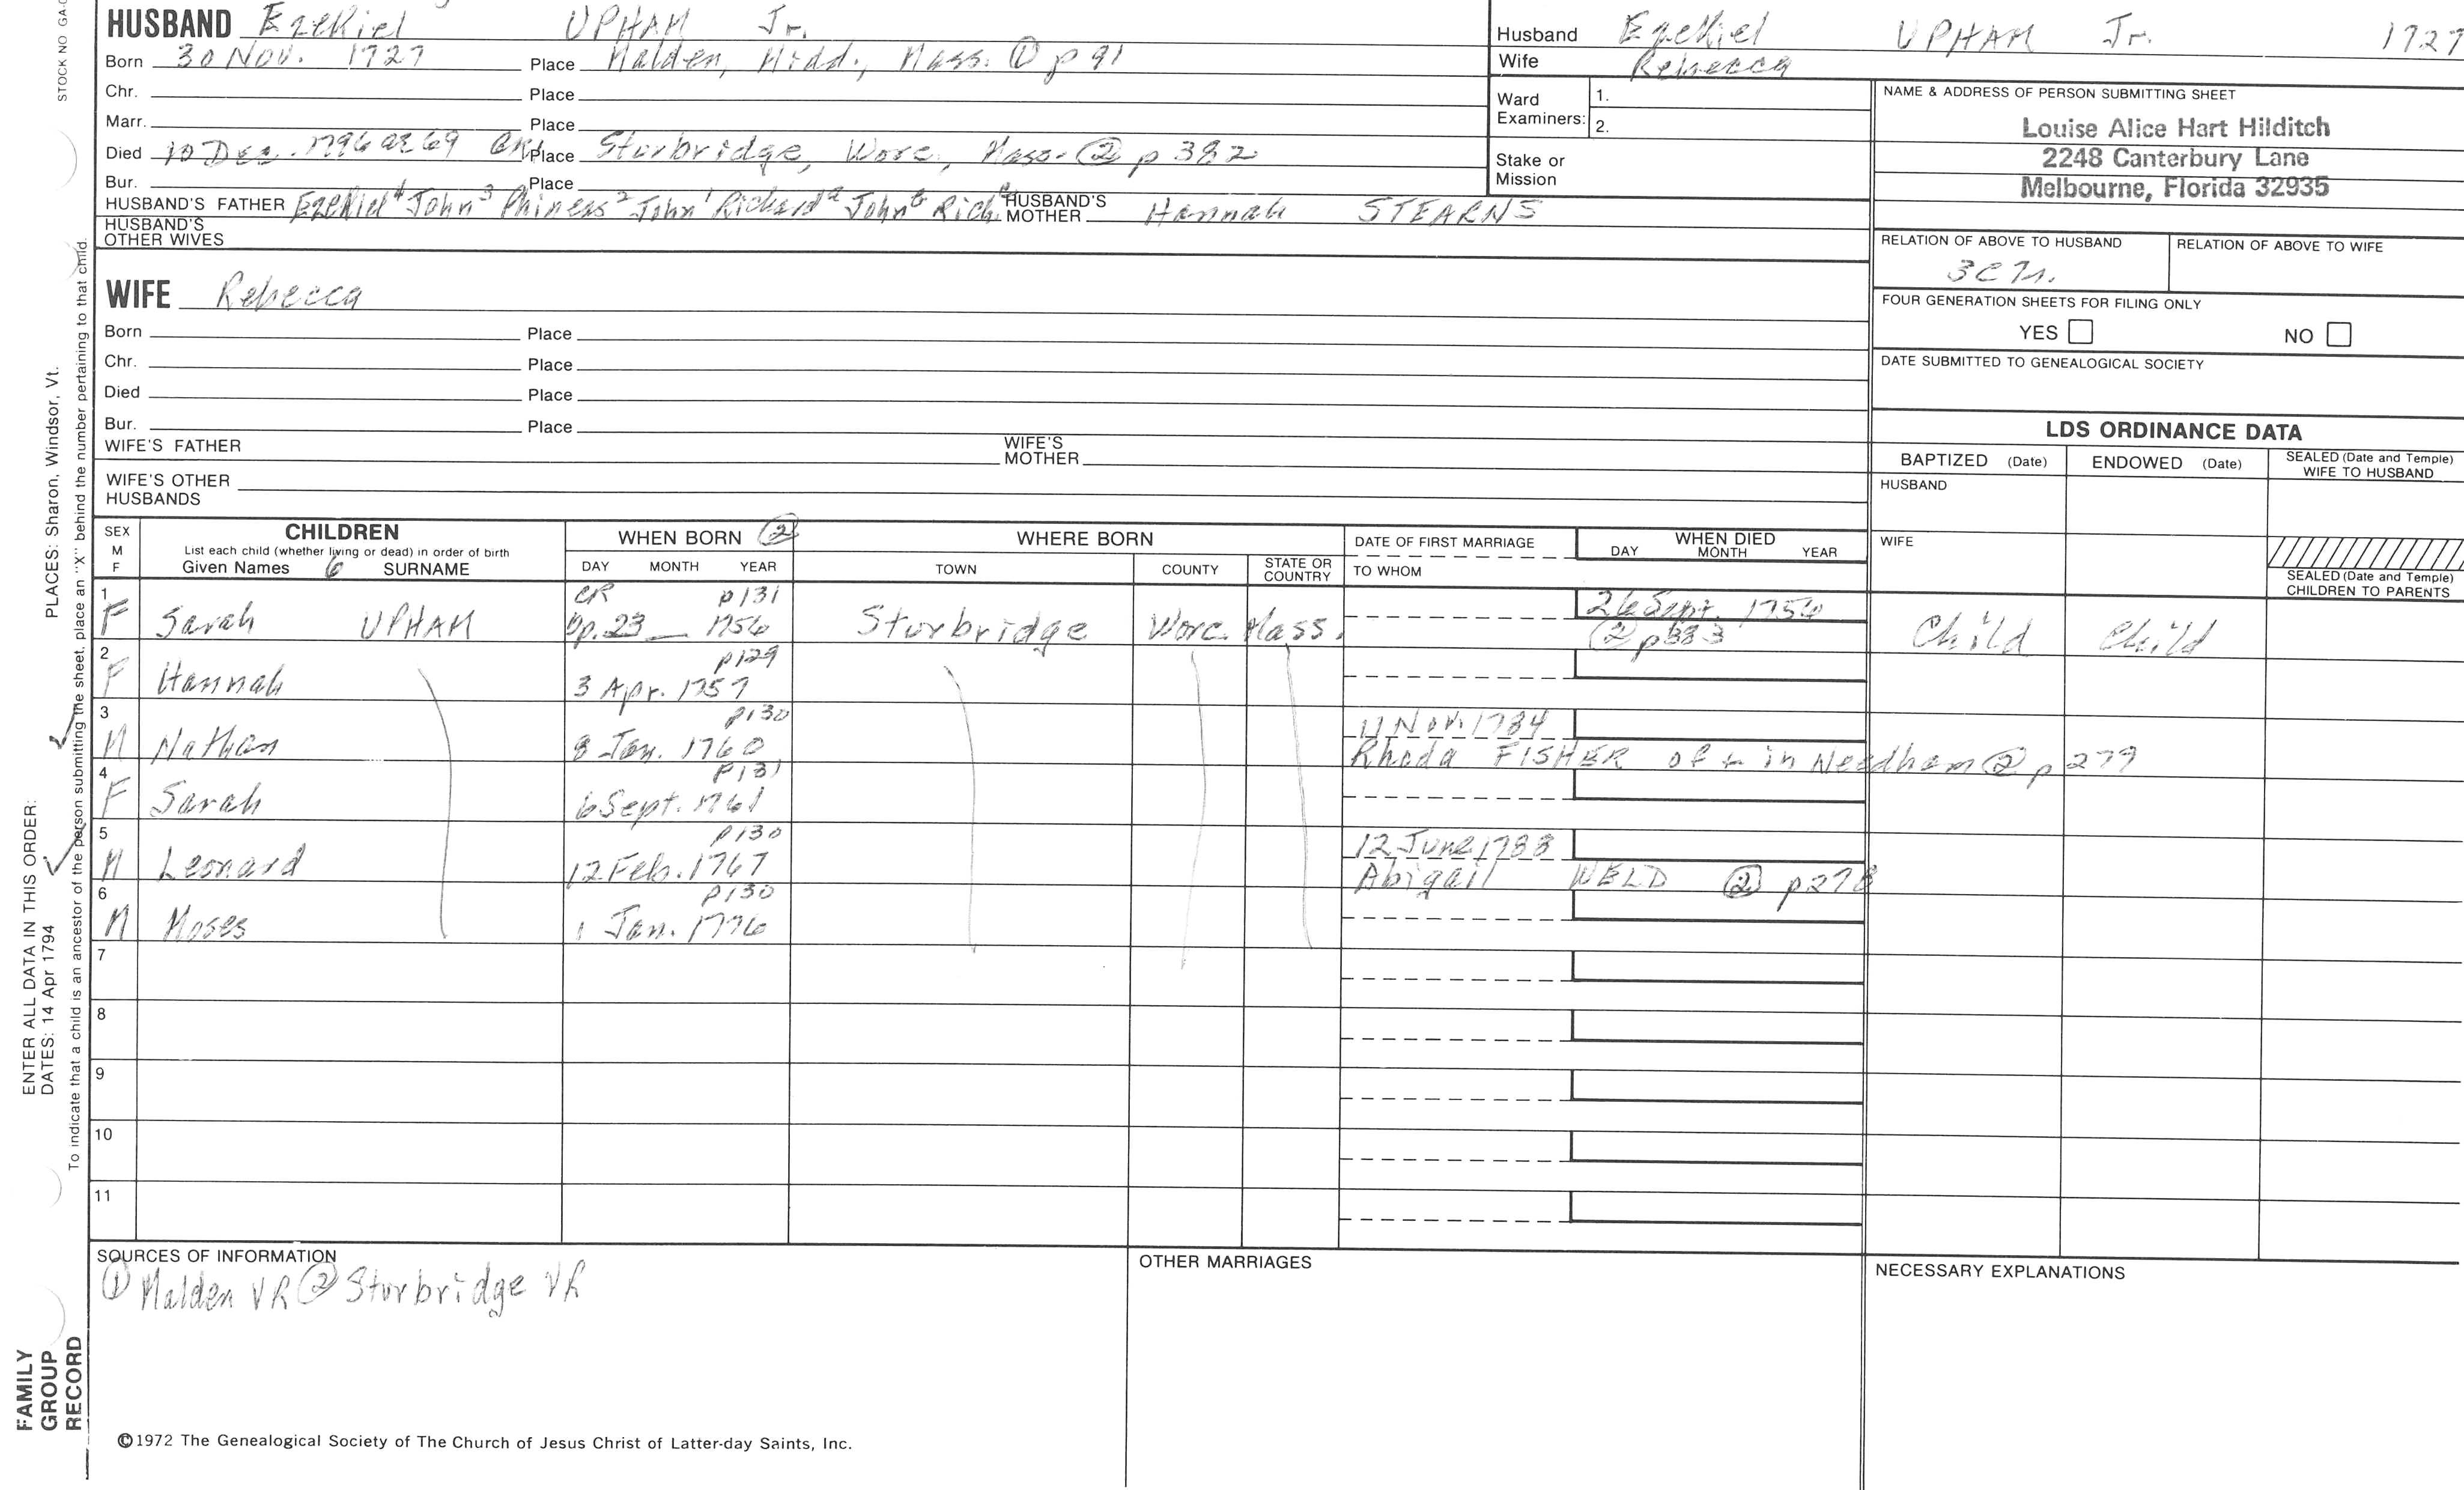 STOCK NO GA-
HUSBAND Ezekiel UPHAM Jr.
Born 30 Nov. 1727 Place Malden, Midd., Mass. ① p 91
Chr. Place
Marr. Place
Died 10 Dec. 1796 ae 69 Place Sturbridge, Worc. Mass. ② p 382
Bur. Place
HUSBAND'S FATHER Ezekiel⁴ John³ Phineas² John¹ Richard John Rich HUSBAND'S MOTHER Hannah STEARNS
HUSBAND'S OTHER WIVES
WIFE Rebecca
Born Place
Chr. Place
Died Place
Bur. Place
WIFE'S FATHER WIFE'S MOTHER
WIFE'S OTHER HUSBANDS
Husband Ezekiel UPHAM Jr. 1727
Wife Rebecca
Ward Examiners: 1.
2.
Stake or Mission
NAME & ADDRESS OF PERSON SUBMITTING SHEET
Louise Alice Hart Hilditch
2248 Canterbury Lane
Melbourne, Florida 32935
RELATION OF ABOVE TO HUSBAND RELATION OF ABOVE TO WIFE
FOUR GENERATION SHEETS FOR FILING ONLY
YES NO
DATE SUBMITTED TO GENEALOGICAL SOCIETY
LDS ORDINANCE DATA
BAPTIZED (Date) ENDOWED (Date) SEALED (Date and Temple) WIFE TO HUSBAND
HUSBAND
WIFE
SEALED (Date and Temple) CHILDREN TO PARENTS
SEX M F
CHILDREN
List each child (whether living or dead) in order of birth
Given Names 6 SURNAME
WHEN BORN ②
DAY MONTH YEAR
WHERE BORN
TOWN COUNTY STATE OR COUNTRY
DATE OF FIRST MARRIAGE
TO WHOM
WHEN DIED
DAY MONTH YEAR
1 CR p131 26 Sept. 1756
F Sarah UPHAM Bp. 23 — 1756 Sturbridge Worc. Mass. ② p383 Child Child
2 p129
F Hannah 3 Apr. 1757
3 p130 11 Nov. 1784
M Nathan 8 Jan. 1760 Rhoda FISHER of & in Needham ② p 279
4 p131
F Sarah 6 Sept. 1761
5 p130 12 June 1788
M Leonard 12 Feb. 1767 Abigail WELD ② p278
6 p130
M Moses 1 Jan. 1776
7
8
9
10
11
SOURCES OF INFORMATION
① Malden VR ② Sturbridge VR
OTHER MARRIAGES
NECESSARY EXPLANATIONS
©1972 The Genealogical Society of The Church of Jesus Christ of Latter-day Saints, Inc.
FAMILY
GROUP
RECORD
ENTER ALL DATA IN THIS ORDER:
DATES: 14 Apr 1794 PLACES: Sharon, Windsor, Vt.
To indicate that a child is an ancestor of the person submitting the sheet, place an "X" behind the number pertaining to that child.